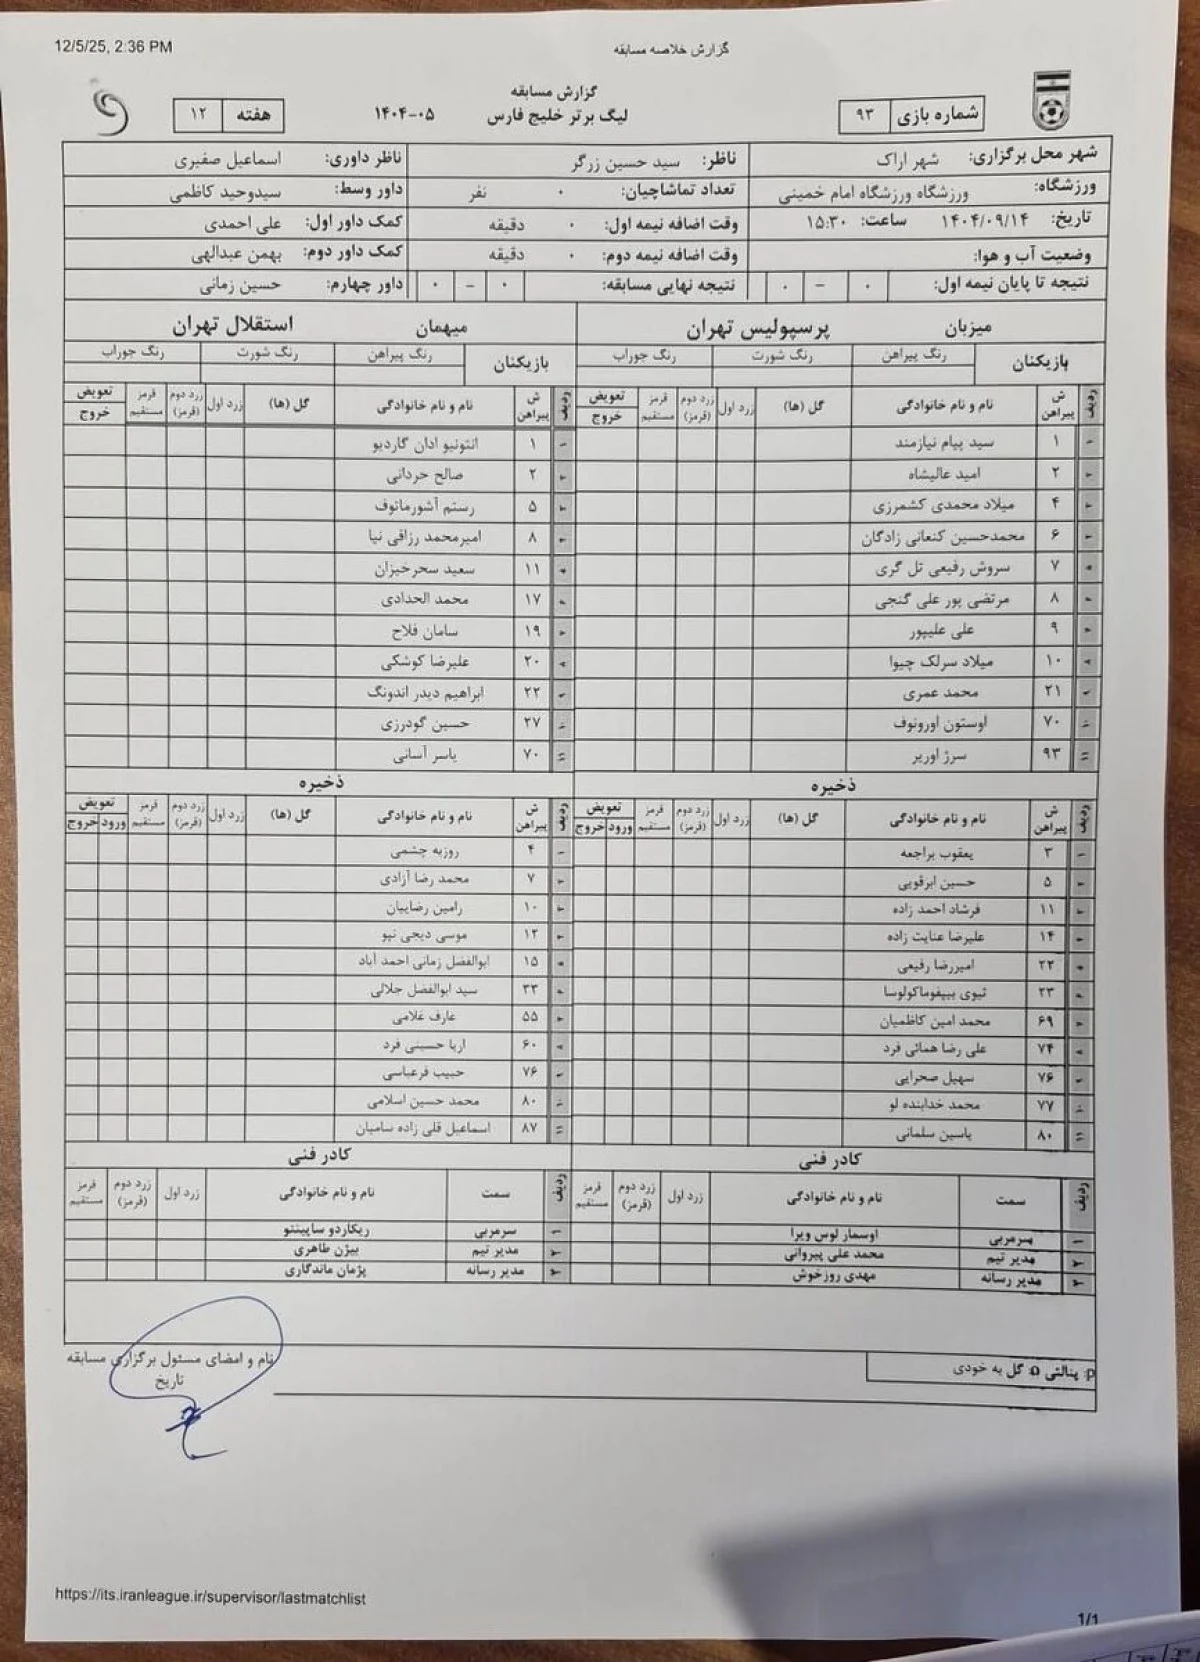 12/5/25, 2:36 PM
گزارش خلاصه مسابقه
گزارش مسابقه
شماره بازی ۹۳
لیگ برتر خلیج فارس ۰۵-۱۴۰۴
هفته ۱۲
شهر محل برگزاری: شهر اراک ناظر: سید حسین زرگر ناظر داوری: اسماعیل صفیری
ورزشگاه: ورزشگاه ورزشگاه امام خمینی تعداد تماشاچیان: ۰ نفر داور وسط: سیدوحید کاظمی
تاریخ: ۱۴۰۴/۰۹/۱۴ ساعت: ۱۵:۳۰ وقت اضافه نیمه اول: ۰ دقیقه کمک داور اول: علی احمدی
وضعیت آب و هوا: وقت اضافه نیمه دوم: ۰ دقیقه کمک داور دوم: بهمن عبدالهی
نتیجه تا پایان نیمه اول: ۰ - ۰ نتیجه نهایی مسابقه: ۰ - ۰ داور چهارم: حسین زمانی
میزبان پرسپولیس تهران میهمان استقلال تهران
بازیکنان رنگ پیراهن رنگ شورت رنگ جوراب بازیکنان رنگ پیراهن رنگ شورت رنگ جوراب
ردیف ش پیراهن نام و نام خانوادگی گل (ها) زرد اول زرد دوم (قرمز) قرمز مستقیم تعویض خروج ردیف ش پیراهن نام و نام خانوادگی گل (ها) زرد اول زرد دوم (قرمز) قرمز مستقیم تعویض خروج
۱ ۱ سید پیام نیازمند ۱ ۱ انتونیو ادان گاردیو
۲ ۲ امید عالیشاه ۲ ۲ صالح حردانی
۳ ۴ میلاد محمدی کشمرزی ۳ ۵ رستم آشورماتوف
۴ ۶ محمدحسین کنعانی زادگان ۴ ۸ امیرمحمد رزاقی نیا
۵ ۷ سروش رفیعی تل گری ۵ ۱۱ سعید سحرخیزان
۶ ۸ مرتضی پور علی گنجی ۶ ۱۷ محمد الحدادی
۷ ۹ علی علیپور ۷ ۱۹ سامان فلاح
۸ ۱۰ میلاد سرلک چیوا ۸ ۲۰ علیرضا کوشکی
۹ ۲۱ محمد عمری ۹ ۲۲ ابراهیم دیدر اندونگ
۱۰ ۷۰ اوستون اورونوف ۱۰ ۲۷ حسین گودرزی
۱۱ ۹۳ سرژ اوریر ۱۱ ۷۰ یاسر آسانی
ذخیره ذخیره
ردیف ش پیراهن نام و نام خانوادگی گل (ها) زرد اول زرد دوم (قرمز) قرمز مستقیم تعویض ورود خروج ردیف ش پیراهن نام و نام خانوادگی گل (ها) زرد اول زرد دوم (قرمز) قرمز مستقیم تعویض ورود خروج
۱ ۳ یعقوب براجعه ۱ ۴ روزبه چشمی
۲ ۵ حسین ابرقویی ۲ ۷ محمد رضا آزادی
۳ ۱۱ فرشاد احمد زاده ۳ ۱۰ رامین رضاییان
۴ ۱۴ علیرضا عنایت زاده ۴ ۱۲ موسی دیجی نپو
۵ ۲۲ امیررضا رفیعی ۵ ۱۵ ابوالفضل زمانی احمد آباد
۶ ۲۳ ثیوی بیپفوماکولوسا ۶ ۳۳ سید ابوالفضل جلالی
۷ ۶۹ محمد امین کاظمیان ۷ ۵۵ عارف غلامی
۸ ۷۴ علی رضا همائی فرد ۸ ۶۰ اریا حسینی فرد
۹ ۷۶ سهیل صحرایی ۹ ۷۶ حبیب فرعباسی
۱۰ ۷۷ محمد خدابنده لو ۱۰ ۸۰ محمد حسین اسلامی
۱۱ ۸۰ یاسین سلمانی ۱۱ ۸۷ اسماعیل قلی زاده سامیان
کادر فنی کادر فنی
ردیف سمت نام و نام خانوادگی زرد اول زرد دوم (قرمز) قرمز مستقیم ردیف سمت نام و نام خانوادگی زرد اول زرد دوم (قرمز) قرمز مستقیم
۱ سرمربی اوسمار لوس ویرا ۱ سرمربی ریکاردو ساپینتو
۲ مدیر تیم محمد علی پیروانی ۲ مدیر تیم بیژن طاهری
۳ مدیر رسانه مهدی روزخوش ۳ مدیر رسانه پژمان ماندگاری
نام و امضای مسئول برگزاری مسابقه
p: پنالتی o: گل به خودی
تاریخ
https://its.iranleague.ir/supervisor/lastmatchlist
1/1